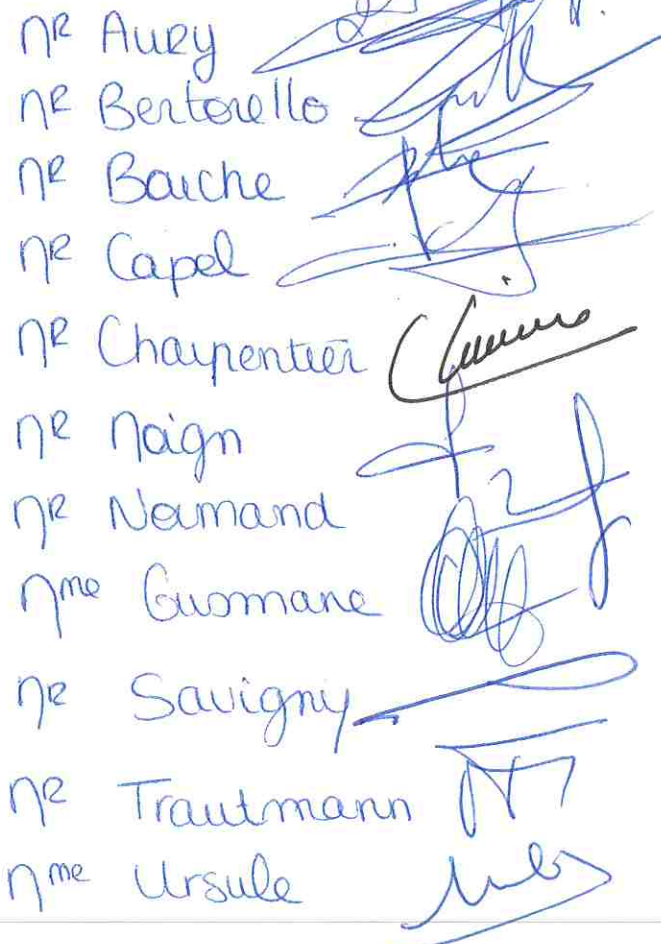 Mr Aury
Mr Bertorello
Mr Baiche
Mr Capel
Mr Charpentier
Mr Maign
Mr Normand
Mme Gusmane
Mr Savigny
Mr Trautmann
Mme Ursule